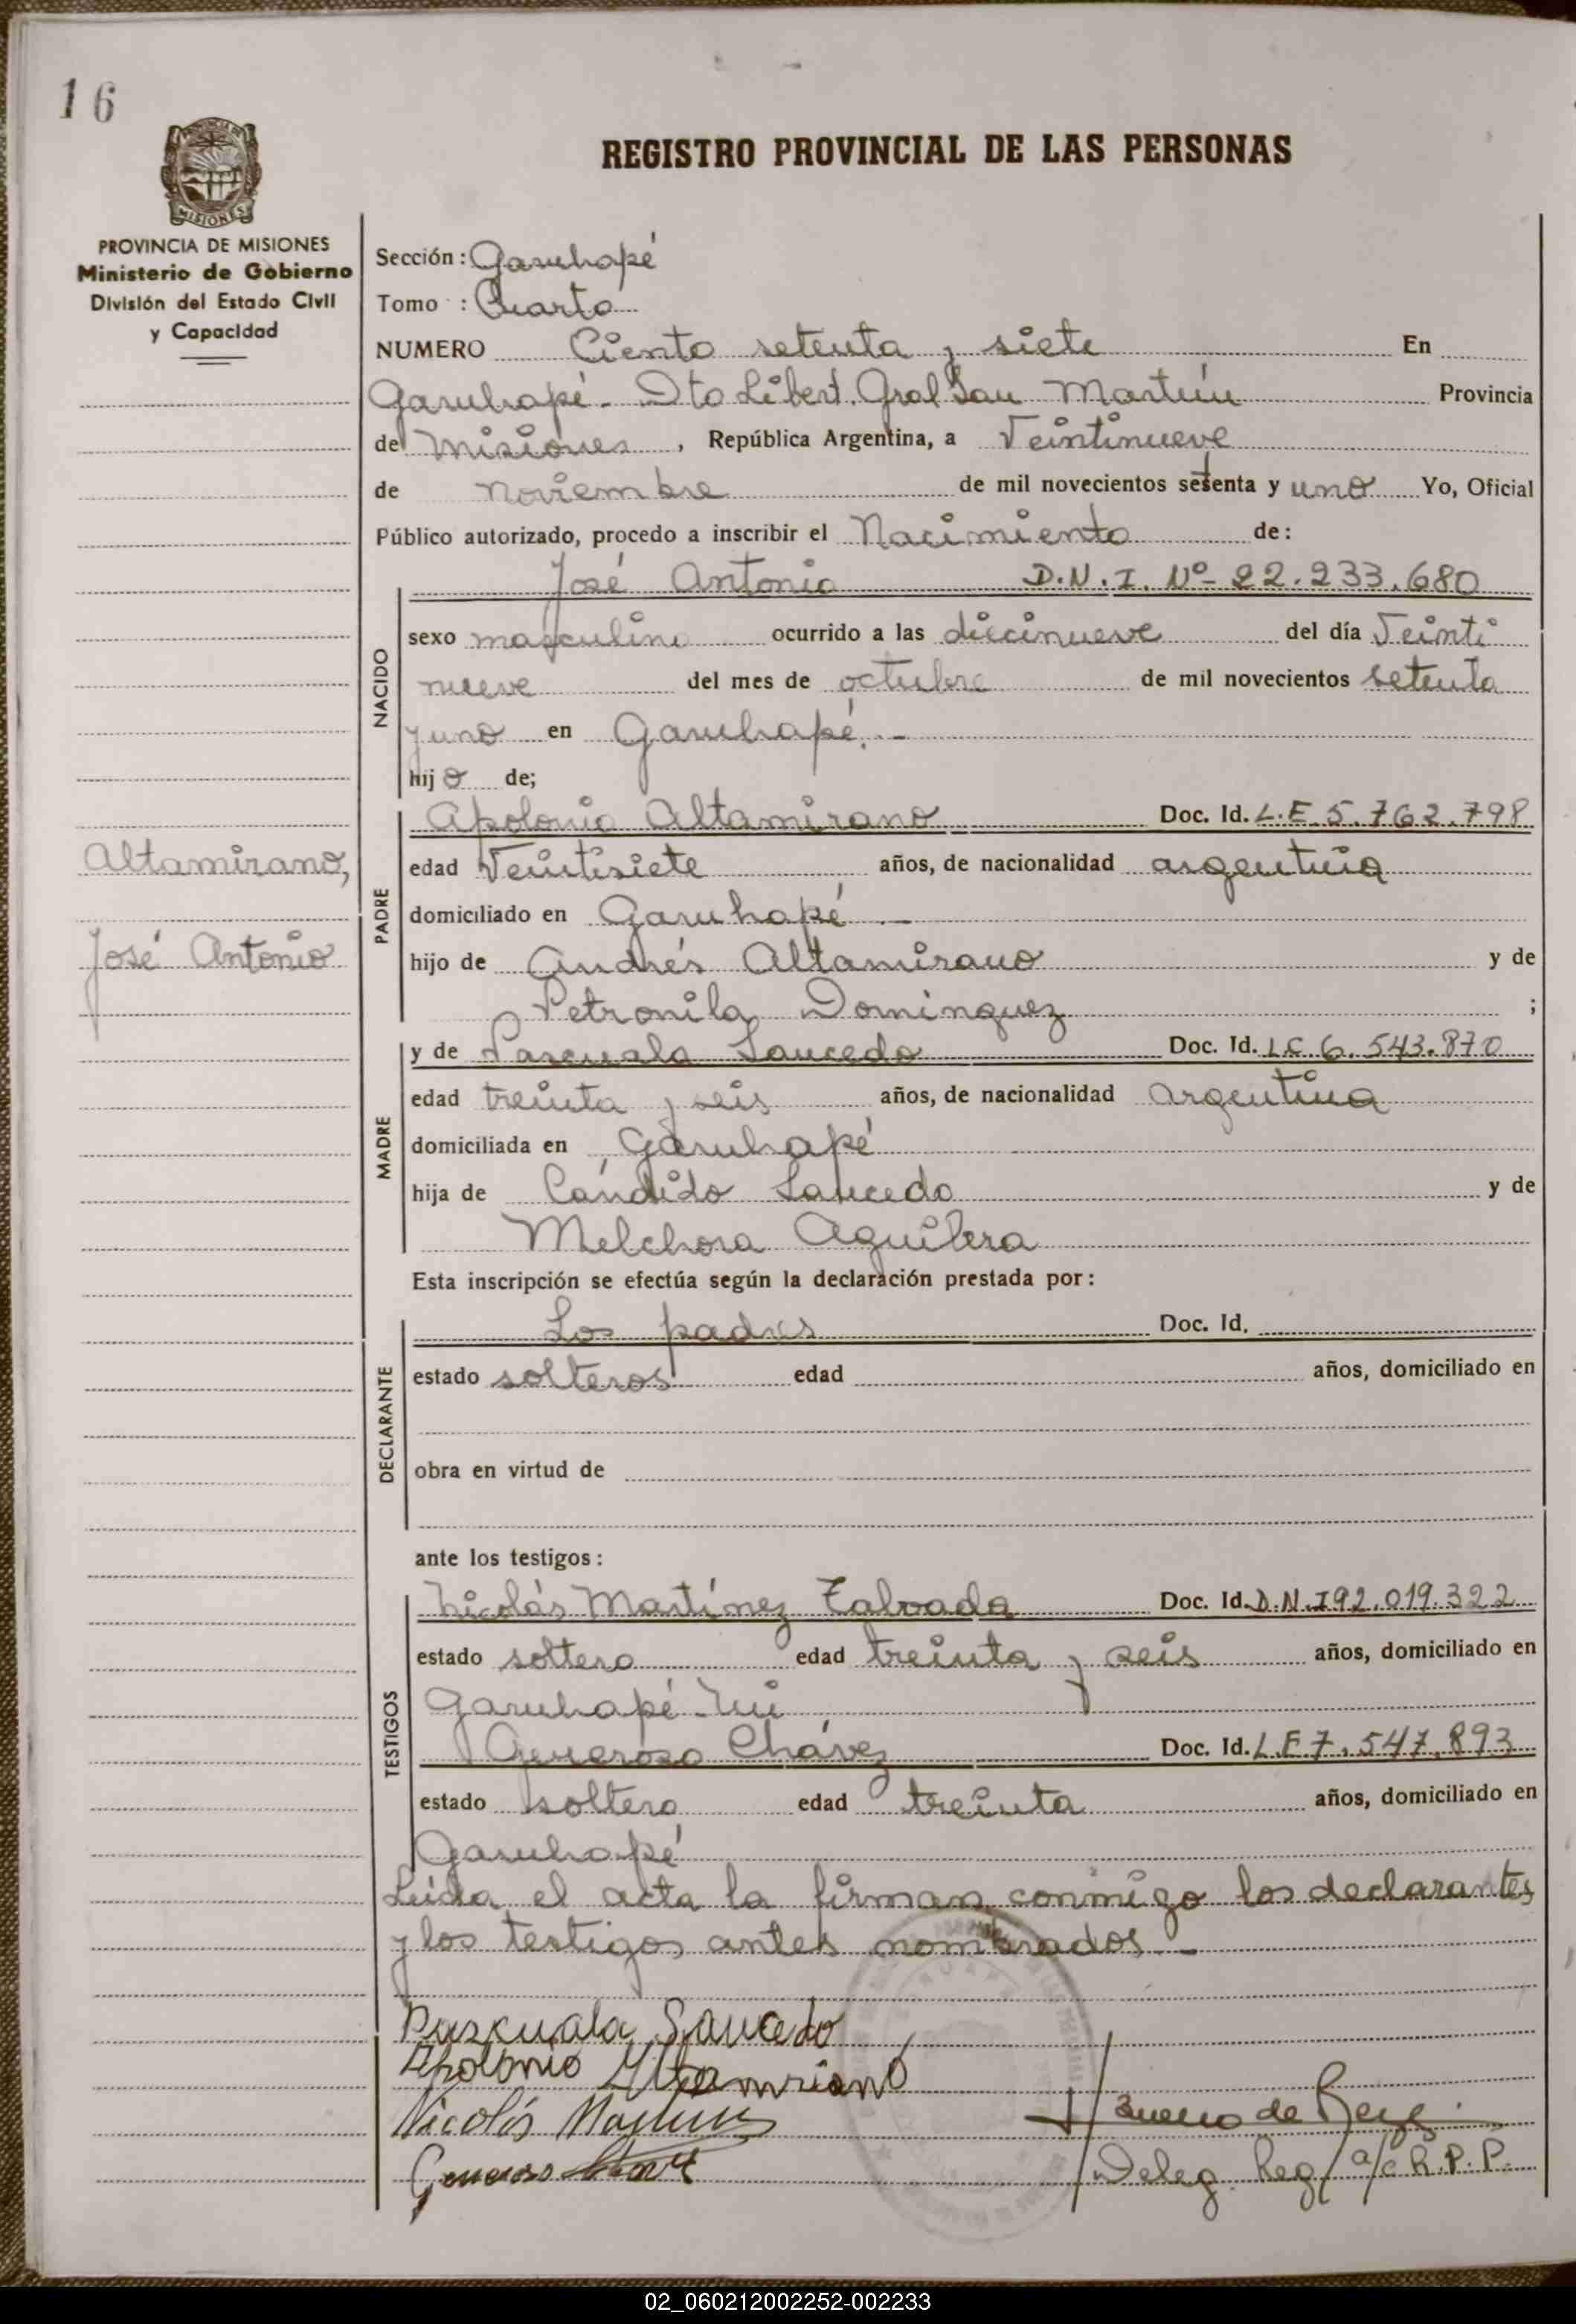 16
REGISTRO PROVINCIAL DE LAS PERSONAS
MISIONES
PROVINCIA DE MISIONES
Ministerio de Gobierno
División del Estado Civil
y Capacidad
Sección: Garuhapé
Tomo : Cuarto
NUMERO Ciento setenta y siete En
Garuhapé - Dto Libert. Gral San Martín Provincia
de Misiones, República Argentina, a Veintinueve
de noviembre de mil novecientos setenta y uno Yo, Oficial
Público autorizado, procedo a inscribir el Nacimiento de:
José Antonio D.N.I. Nº 22.233.680
NACIDO
sexo masculino ocurrido a las diecinueve del día Veinti
nueve del mes de octubre de mil novecientos setenta
y uno en Garuhapé.-
hijo de;
Apolonio Altamirano Doc. Id. L.E. 5.762.798
Altamirano,
José Antonio
PADRE
edad Veintisiete años, de nacionalidad argentina
domiciliado en Garuhapé -
hijo de Andrés Altamirano y de
Petronila Dominguez ;
y de Pascuala Saucedo Doc. Id. L.C. 6.543.870
MADRE
edad treinta y seis años, de nacionalidad argentina
domiciliada en Garuhapé
hija de Cándido Saucedo y de
Melchora Aguilera
Esta inscripción se efectúa según la declaración prestada por:
Los padres Doc. Id.
DECLARANTE
estado solteros edad años, domiciliado en
obra en virtud de
ante los testigos:
Nicolás Martínez Taboada Doc. Id. D.N.I 92.019.322
TESTIGOS
estado soltero edad treinta y seis años, domiciliado en
Garuhapé-Mi
Generoso Chávez Doc. Id. L.E 7.547.893
estado soltero edad treinta años, domiciliado en
Garuhapé
Leida el acta la firman conmigo los declarantes
y los testigos antes nombrados -
Puzcuala Saucedo
Apolonio Altamriano
Nicolás
Generoso
de
Deleg. Reg/ a/c R.P.P.
02_060212002252-002233